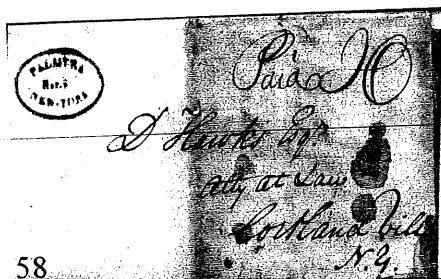 PALMYRA
NEW-YORK
Paid 10
D Hawks Esqr
Atty at Law
Cortland vill
N.Y.
58